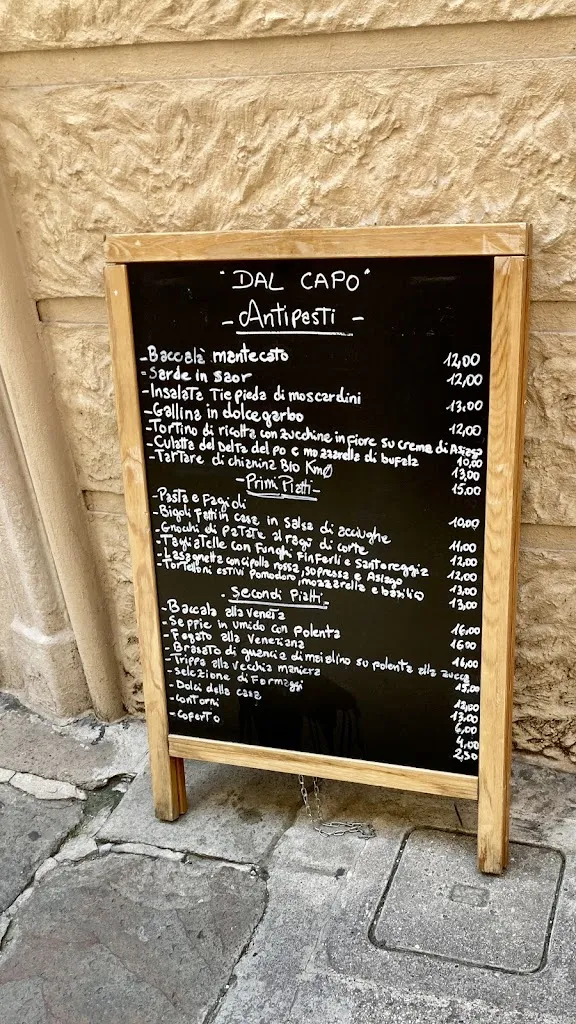 "DAL CAPO"
- Antipasti -
- Baccalà mantecato 12,00
- Sarde in saor 12,00
- Insalata Tiepida di moscardini 13,00
- Gallina in dolcegarbo 12,00
- Tortino di ricotta con zucchine in fiore su crema di Asiago 10,00
- Culatta del delta del po e mozzarella di bufala 13,00
- Tartare di chianina Bio Km0 15,00
- Primi Piatti -
- Pasta e Fagioli 10,00
- Bigoli Fatti in casa in salsa di acciughe 11,00
- Gnochi di Patate al ragù di corte 12,00
- Tagliatelle con Funghi Finferli e Santoreggia 12,00
- Lasagnetta con cipolla rossa, sopressa e Asiago 13,00
- Tortelloni estivi Pomodoro, mozzarella e basilico 13,00
- Secondi Piatti -
- Baccala alla veneta 16,00
- Seppie in umido con polenta 16,00
- Fegato alla Veneziana 16,00
- Brasato di guancia di maialino su polenta alla zucca 15,00
- Trippa alla vecchia maniera 12,00
- Selezione di Formaggi 13,00
- Dolci della casa 6,00
- Contorni 4,00
- Coperto 2,50